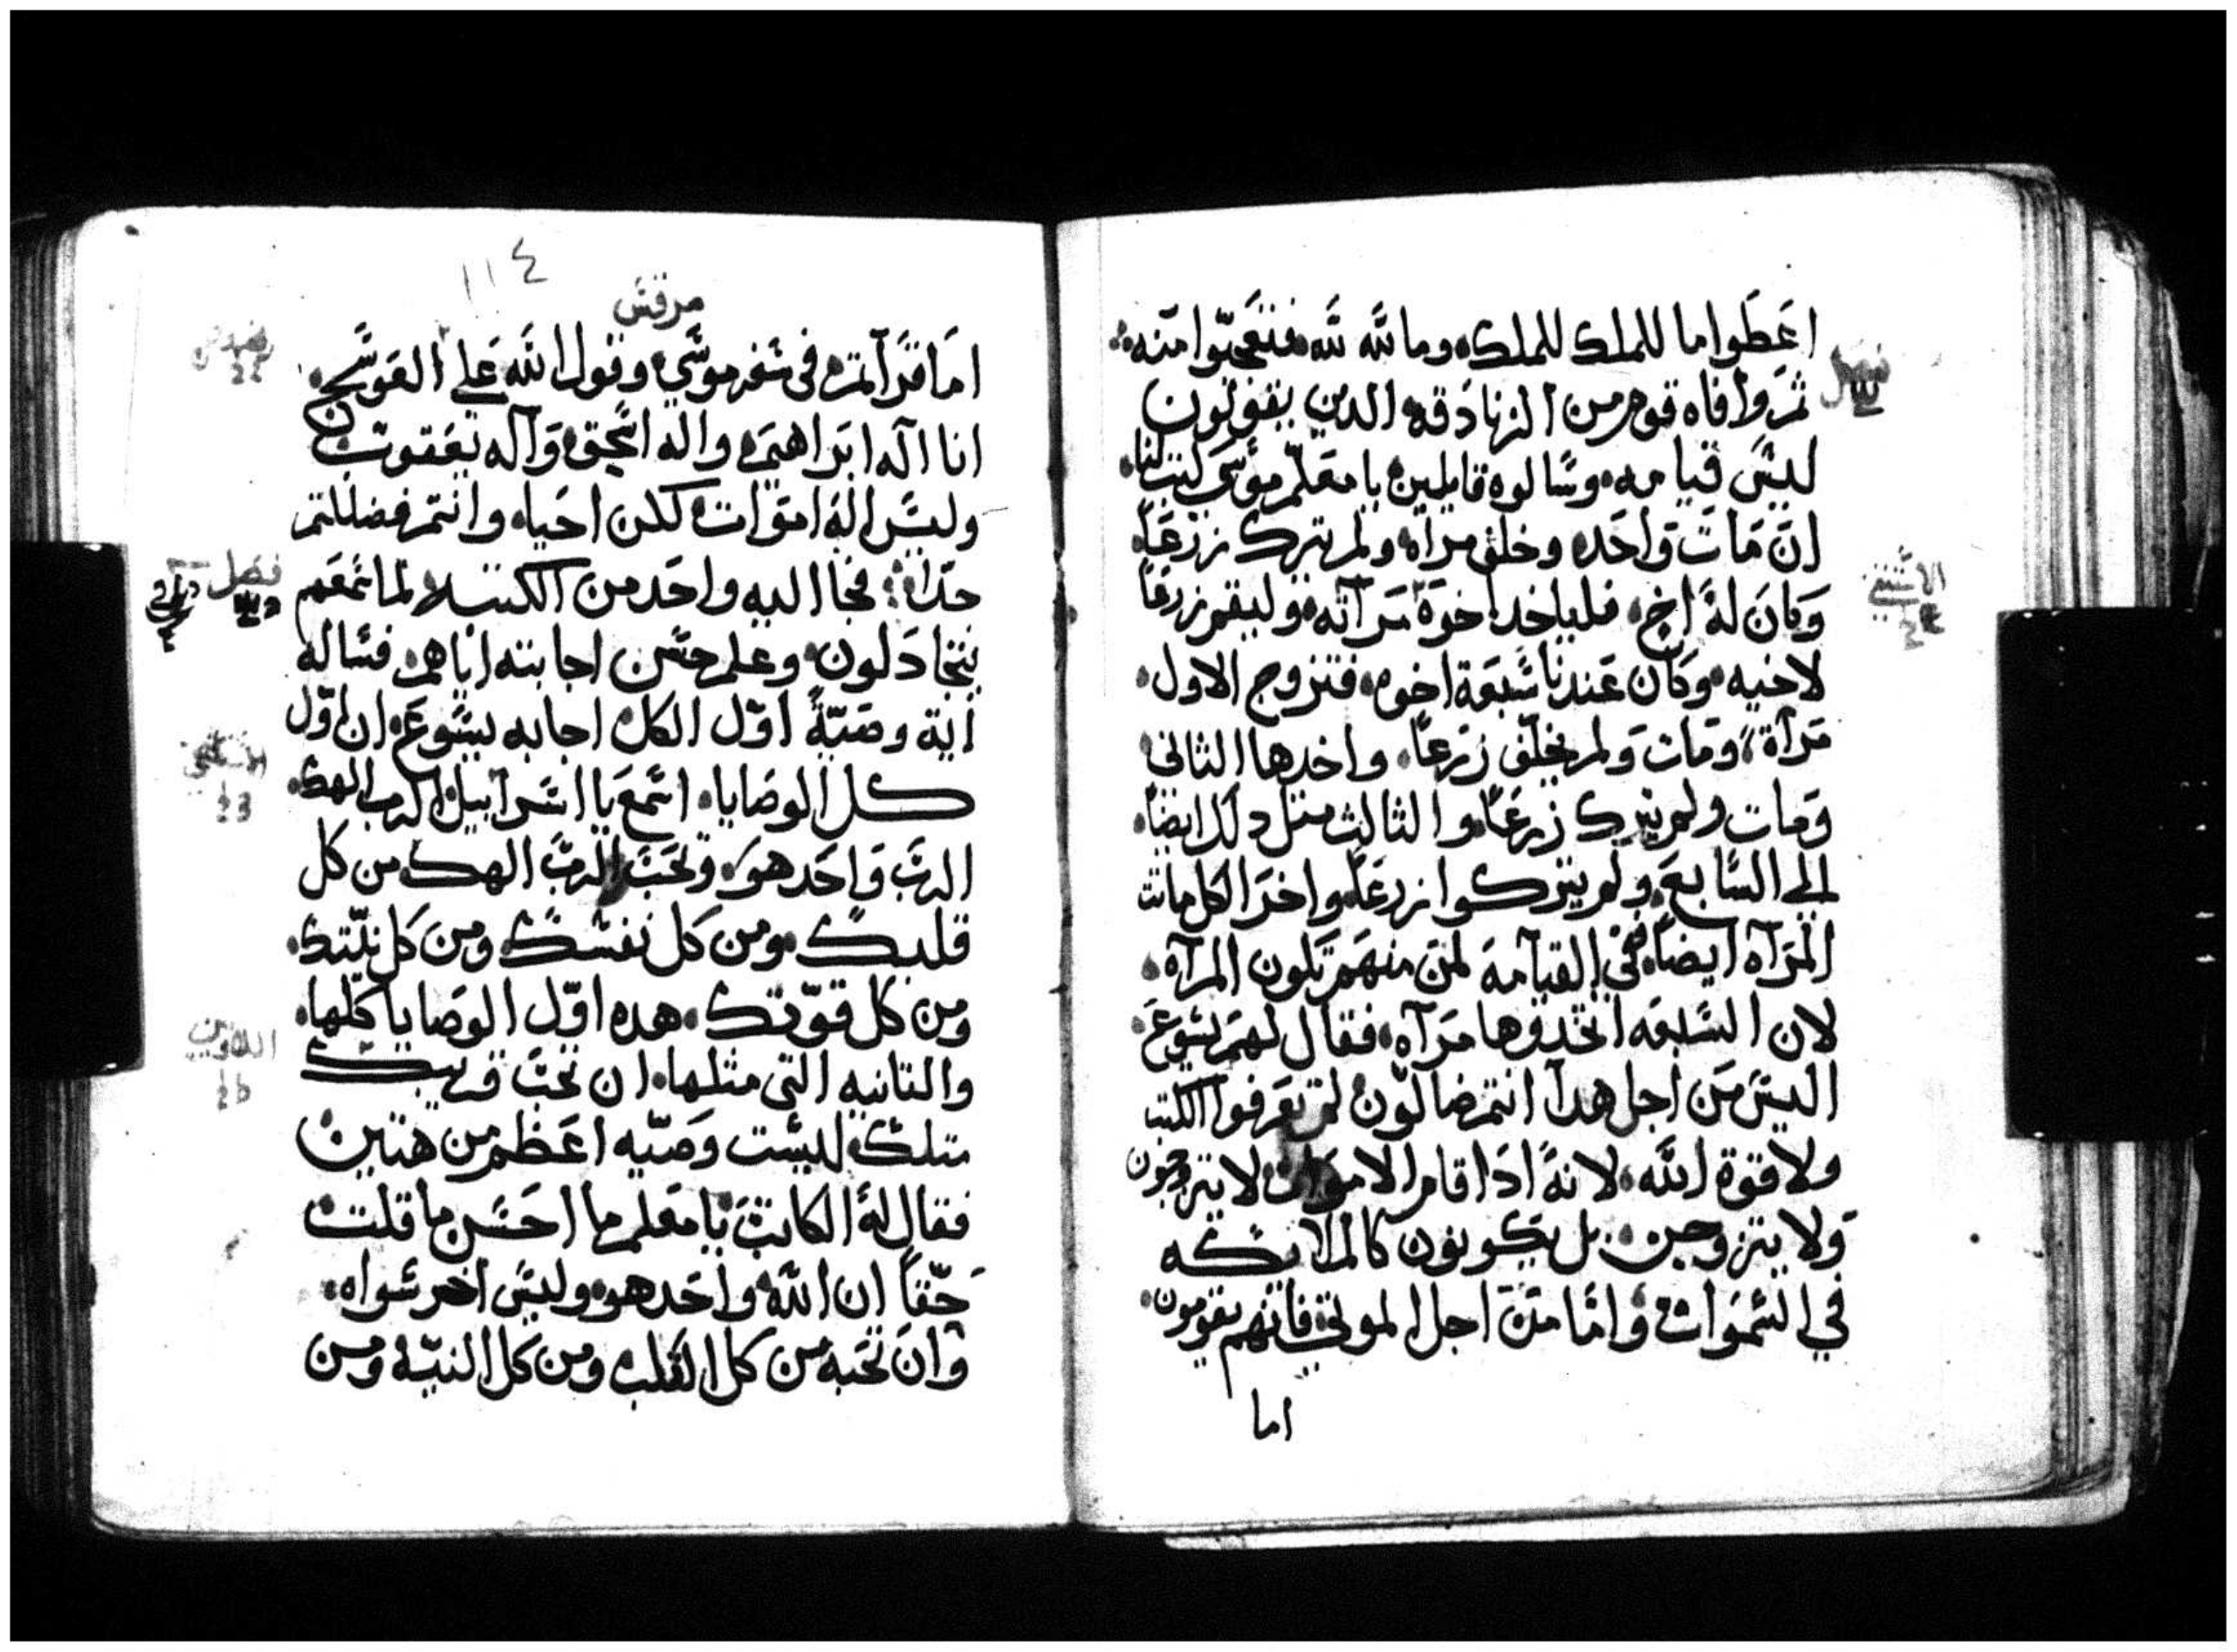 اعَطَوا ما للملك للملك وما لله لله فتعجّبوا منه
ثمّ وافاه قوم من الزنادقه الدين يقولون
ليسَ قيامه وسالوه قايلين يا معلّم موسى كتب لنا
انَ مَاتَ وَاحَد وخلف مراه ولم يترك زرعَاً
وَكانَ لهُ اخ فلياخد اخوهَ مَرآته وليقم زرعاً
لاخيه وَكان عَندنا سَبعَة اخوه فتزوج الاول
مَرآة ومَات وَلم يخلّف زرعاً واخدها الثاني
وَمات ولم يترك زرعَاً والثالث متل دلك ايضاً
الي السَّابعَ ولم يتركوا زرعَاً واخرَ الكل ماتت
المَرآه ايضاً ففي القيآمة لمَن منهَم تكون المرآه
لان السَّبعَه اتخدوها مَرآه فقال لهمَ يسَوعَ
اليسَ مَن اجل هدآ انتم ضالّون لم تعَرفوا الكتب
ولا قوة الله لانهُ ادَا قام الاموات لا يتزوجون
وَلا يتزوجن بل يكونون كالملايكه
في السَّمَوات وَامّا منَ اجل الموتي فانهم يقومون
اما
١١٤
مرقس
امَا قرَآتم في سَفر موسَي وقول الله عَلي العَوسَج
انا اله ابرَاهيم واله اسَحق وَآله يعَقوب
وليسَ اله امَوات لكن احَيا وانتم فضللتم
جدّا فجا اليه واحَد من الكتبه لما سَمعَهم
يتجادَلون وعلم حسَن اجابته ايّاهم فسَاله
اية وصَيّةً اوّل الكل اجابه يسَوعَ ان اوّل
كل الوصَايا اسَمعَ يا اسَرآييل الرب الهك
الربَ وَاحَد هوَ وتحَبَ الربَ الهك من كل
قلبك ومن كل نفسَك ومن كل نيّتك
ومن كل قوّتك هده اوّل الوصَايا كلّها
والتانيه التي متلها ان تحبَ قريبك
متلك ليسَت وَصَيّه اعَظم من هتين
فقال لهُ الكاتبَ يا معَلم ما احَسَن ما قلت
حَقّاً ان الله واحَد هو وليسَ اخر سَواه
وَانَ تحَبه من كل القلب ومن كل النيّة ومن